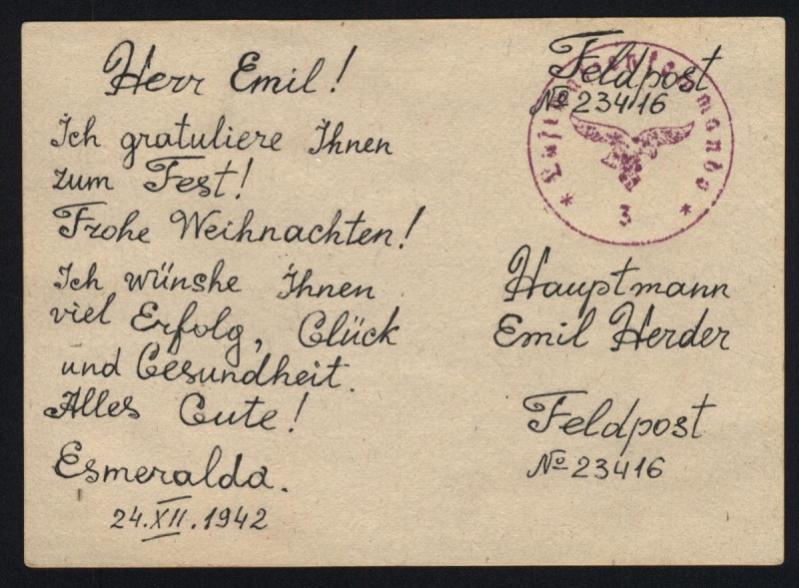 Herr Emil!
Ich gratuliere Ihnen
zum Fest!
Frohe Weihnachten!
Ich wünshe Ihnen
viel Erfolg, Glück
und Gesundheit.
Alles Gute!
Esmeralda.
24.XII.1942
Feldpost
№ 23416
3
Hauptmann
Emil Herder
Feldpost
№ 23416